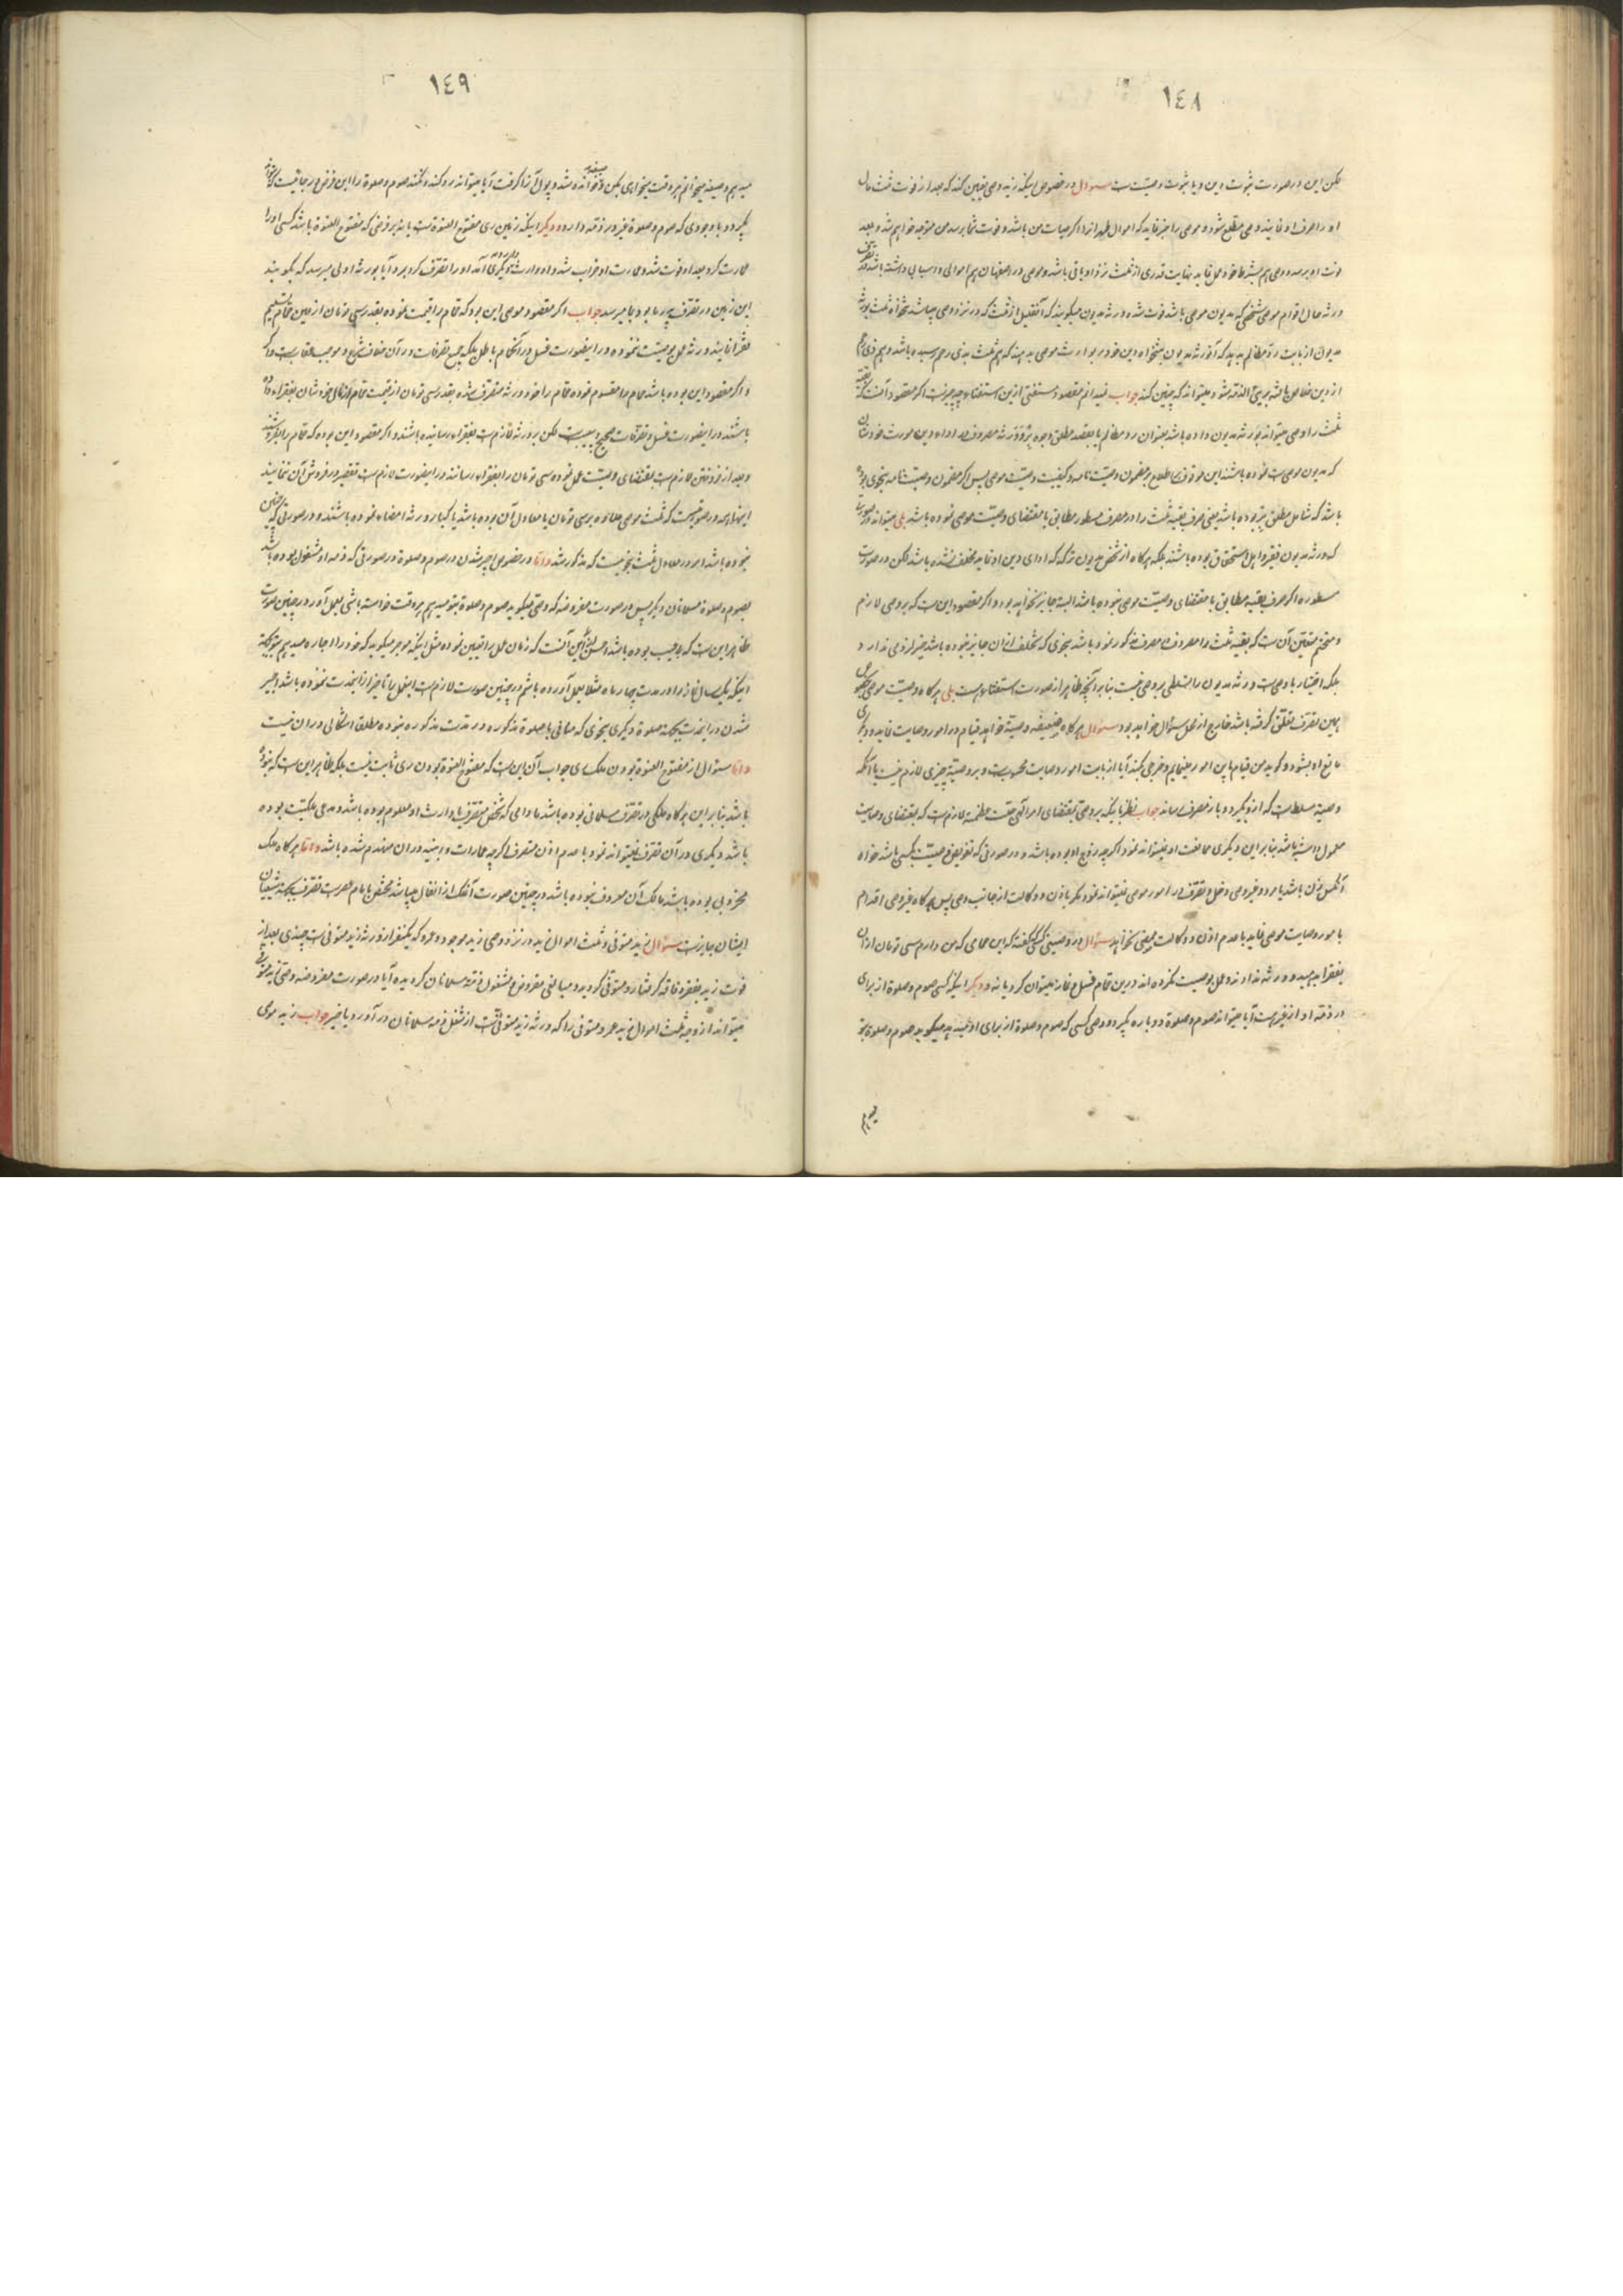 ١٤٨
لکن این در صورت ثبوت دین و یا ثبوت وصیّت است سؤال در خصوص اینکه زید وصی تعیین کند که بعد از فوت ثلث مال
او را صرف او نمایند وصی مطلع شود و موصی را خبر نماید که اموال مرا اگر حیات من باشد و فوت شما برسد من متوجه خواهم شد و بعد
فوت او برسد وصی هم بشرط خود عمل نماید نهایت قدری از ثلث نزد او باقی باشد و موصی در اصفهان هم اموالی و اسبابی داشته باشد
ورثه حال قوام موصی شخصی که مدیون موصی باشد فوت شده ورثه مدیون میگویند که آنقدیل از ثلث که در نزد وصی میباشد تنخواه ثلث بورثه
مدیون از بابت ردّ مظالم بدهد که آنورثه مدیون تنخواه دین خود را بوارث موصی بدهند که هم ثلث بذی رحم رسیده باشد و هم ذی رحم
از دین خلاص باشد بریئ الذمّه شود میتواند که چنین کند جواب نمیدانم مقصود مستفتی ازین استفتاء چه چیز است اگر مقصود آنست که بقیه
ثلث را وصی میتواند بورثه مدیون داده باشد بعنوان رد مظالم یا بقصد مطلق وجوه برّ و ورثه مصروف اداء دین مورث خودشان
که مدیون موصی است نموده باشند این موقوف باطلاع بر مضمون وصیّت نامه و کیفیت وصیّت موصی پس اگر مضمون وصیّتنامه بنحوی بوده
باشد که شامل مطلق برّ بوده باشد یعنی صرف بقیه ثلث را در مصرف مسطور مطابق با مقتضای وصیّت موصی نموده باشد بلی میتواند در صورت
که ورثه مدیون فقیر و اهل استحقاق بوده باشند بلکه هرگاه از شخص مدیون ترکه که ادای دین او نماید مخلف نشده باشد لکن در صورت
مسطوره اگر صرف بقیه مطابق با مقتضای وصیّت موصی نبوده باشد البته جایز نخواهد بود و اگر مقصود این است که بر وصی لازم
و متحتم متعیّن آن است که بقیه ثلث را مصروف مصرف مذکور نمود باشد بنحوی که تخلف از آن جایز نبوده باشد خیر لزومی ندارد
بلکه اختیار با وصی است و ورثه مدیون را تسلطی بر وصی نیست بنابر آنچه ظاهر از صورت استفتاء است بلی هرگاه وصیّت موصی بخصوص
بهمین تصرف تعلّق گرفته باشد خارج از محل سؤال خواهد بود سؤال هرگاه ضعیفه وصیّه خواهد قیام در امور وصایت نماید و دیگری
مانع او بشود و گوید من قیام باین امور مینمایم و خرجی کند آیا از بابت امور وصایت محسوبست و بر وصیّه چیزی لازم نیست یا آنکه
وصیّه مسلط است که ازو بگیرد و باز بمصرف رساند جواب نظر باینکه بر وصی بمقتضای امر الهی جلّت عظمته لازم است که بمقتضای وصایت
معمول داشته باشد بنابراین دیگری ممانعت او نمیتواند نمود اگر چه زوج او بوده باشد و در صورتی که تفویض وصیّت بکسی باشد خواه
آنکس زن باشد یا مرد و غیر وصی دخل و تصرّف در امور موصی نمیتواند نمود مگر باذن و وکالت از جانب وصی پس هرگاه غیر وصی اقدام
بامور وصایت موصی نماید با عدم اذن و وکالت ممضی نخواهد سؤال در وصیتی کسی گفته که این حمامی که من دارم سی تومان از آن
بفقراء بدهید و ورثه نداوند و عمل بوصیت نکرده اند درین حمام غسل و نماز میتوان کرد یا نه و دیگر اینکه کسی صوم و صلوة از برای
در ذمّه او از غیر هست آیا میتواند صوم و صلوة دوباره بگیرد و وصی کسی که صوم و صلوة از برای او میدهد میگوید صوم و صلوة بتو
١٤٩
میدهم و صیغه میخوانم هر وقت میخواهی بکن و خوانده شد و پول آنرا گرفت آیا میتواند رد کند و نکند صوم و صلوة را این فرض در جائیست که
بگیرد و با وجودی که صوم و صلوة غیر در ذمّه دارد و دیگر اینکه زمین ری مفتوح العنوة است یا نه بر فرضی که مفتوح العنوة باشد کسی او را
عمارت کرد بعد او فوت شد و عمارت او خراب شد و او وارث دارد و دیگری آمد او را تصرّف کرد برد آیا بورثه اولی میرسد که بگویند
این زمین در تصرّف پدر ما بود بما میرسد جواب اگر مقصود موصی این بود که حمام را قیمت نموده بقدر سی تومان از عین حمام تسلیم
فقرا نمایند ورثه عمل بوصیت ننموده در اینصورت غسل در آن حمام باطل بلکه جمیع تصرّفات در آن خلاف شرع و موجب عقاب است و اگر
و اگر مقصود این بوده باشد حمام را مقسوم نموده حمام را خود ورثه متصرّف شده بقدر سی تومان از قیمت حمام از مال خودشان بفقراء داده
باشند در اینصورت غسل و تصرّفات صحیح و بی عیب است لکن بر ورثه لازم است بفقراء رسانیده باشند و اگر مقصود این بوده که حمام را بفروشند
و بعد از فروختن لازم است بمقتضای وصیّت عمل نموده سی تومان را بفقراء رسانند در اینصورت لازم است تقصیر در فروش آن ننمایند
اینها همه در صورتیست که ثلث موصی علاوه بر سی تومان یا معادل آن بوده باشد یا کبار ورثه امضاء نموده باشند و در صورتی که چنین
نبوده باشد امر در معادل ثلث بنحویست که مذکور شد و امّا در خصوص اجیر شدن در صوم و صلوة در صورتی که ذمه او مشغول بوده باشد
بصوم و صلوة مسلمانان دیگر پس در صورت مفروضه که وصی میگوید صوم و صلوة بتو میدهم هر وقت خواسته باشی بعمل آور در چنین صورت
ظاهر این است که بی عیب بوده باشد و احسن ازین آنست که زمان عمل را تعیین نموده مثل اینکه موجر میگوید که خود را اجاره میدهم بتو بجهة
اینکه یکسال نماز را در مدت چهار ماه مثلا بعمل آورده باشم در چنین صورت لازم است اینعمل را تاخیر از اینمدت ننموده باشد و اجیر
شدن در اینمدت بجهة صلوة دیگری بنحوی که منافی با صلوة مذکوره در مدت مذکوره نبوده مطلقا اشکالی در ان نیست
و امّا سؤال از مفتوح العنوة بودن ملک ری جواب آن این است که مفتوح العنوة بودن ری ثابت نیست بلکه ظاهر این است که نبوده
باشد بنابراین هرگاه ملکی در تصرّف مسلمانی بوده باشد مادامی که شخص متصرّف یا وارث او معلوم بوده باشد و مدعی ملکیت بوده
باشد دیگری در آن تصرّف نمیتواند نمود با عدم اذن متصرف اگر چه عمارات و ابنیه در ان منهدم شده باشد و امّا هرگاه ملک
مخروبی بوده باشد مالک آن معروف نبوده باشد در چنین صورت آنملک از انفال میباشد مختص بامام عصر است تصّرف بجهة شیعیان
ایشان جایز است سؤال زید متوفی و ثلث اموال زید در نزد وصی زید موجود و عمرو که یکنفر از ورثه زید متوفی است چندی بعد از
فوت زید بفقر و فاقه گرفتار و متوفّی گردید و مبالغی مقروض و مشغول ذمّه مسلمانان گردیده آیا در صورت مفروضه وصی زید متوفی
میتواند از وجه ثلث اموال زید عمرو متوفی را که ورثه زید متوفی است از شغل ذمه مسلمانان در آورد یا خیر جواب زید موصی